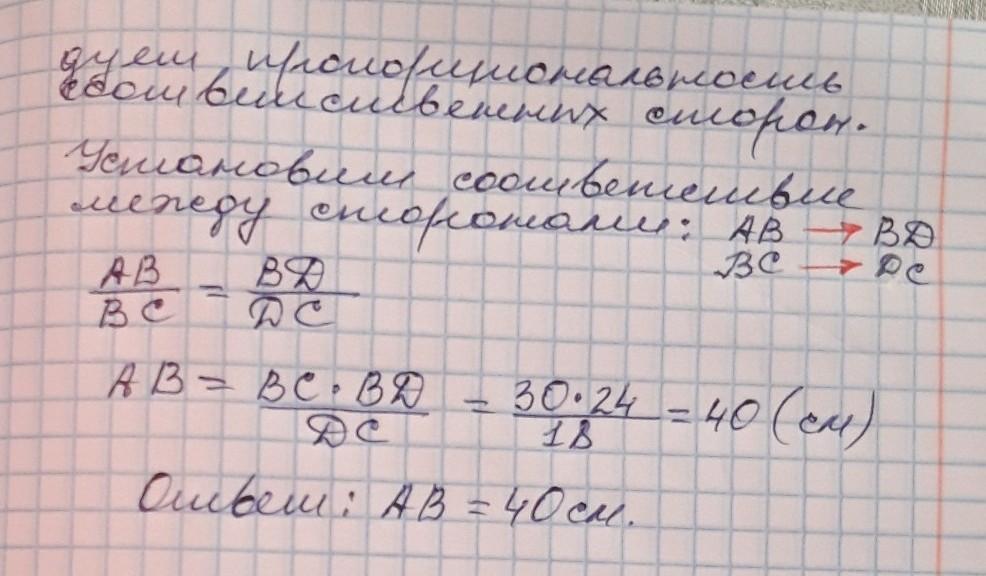 дуем пропорциональность
соответственных сторон.
Установим соответствие
между сторонами: AB → BD
BC → DC
AB/BC = BD/DC
AB = BC·BD/DC = 30·24/18 = 40 (см)
Ответ: AB = 40 см.